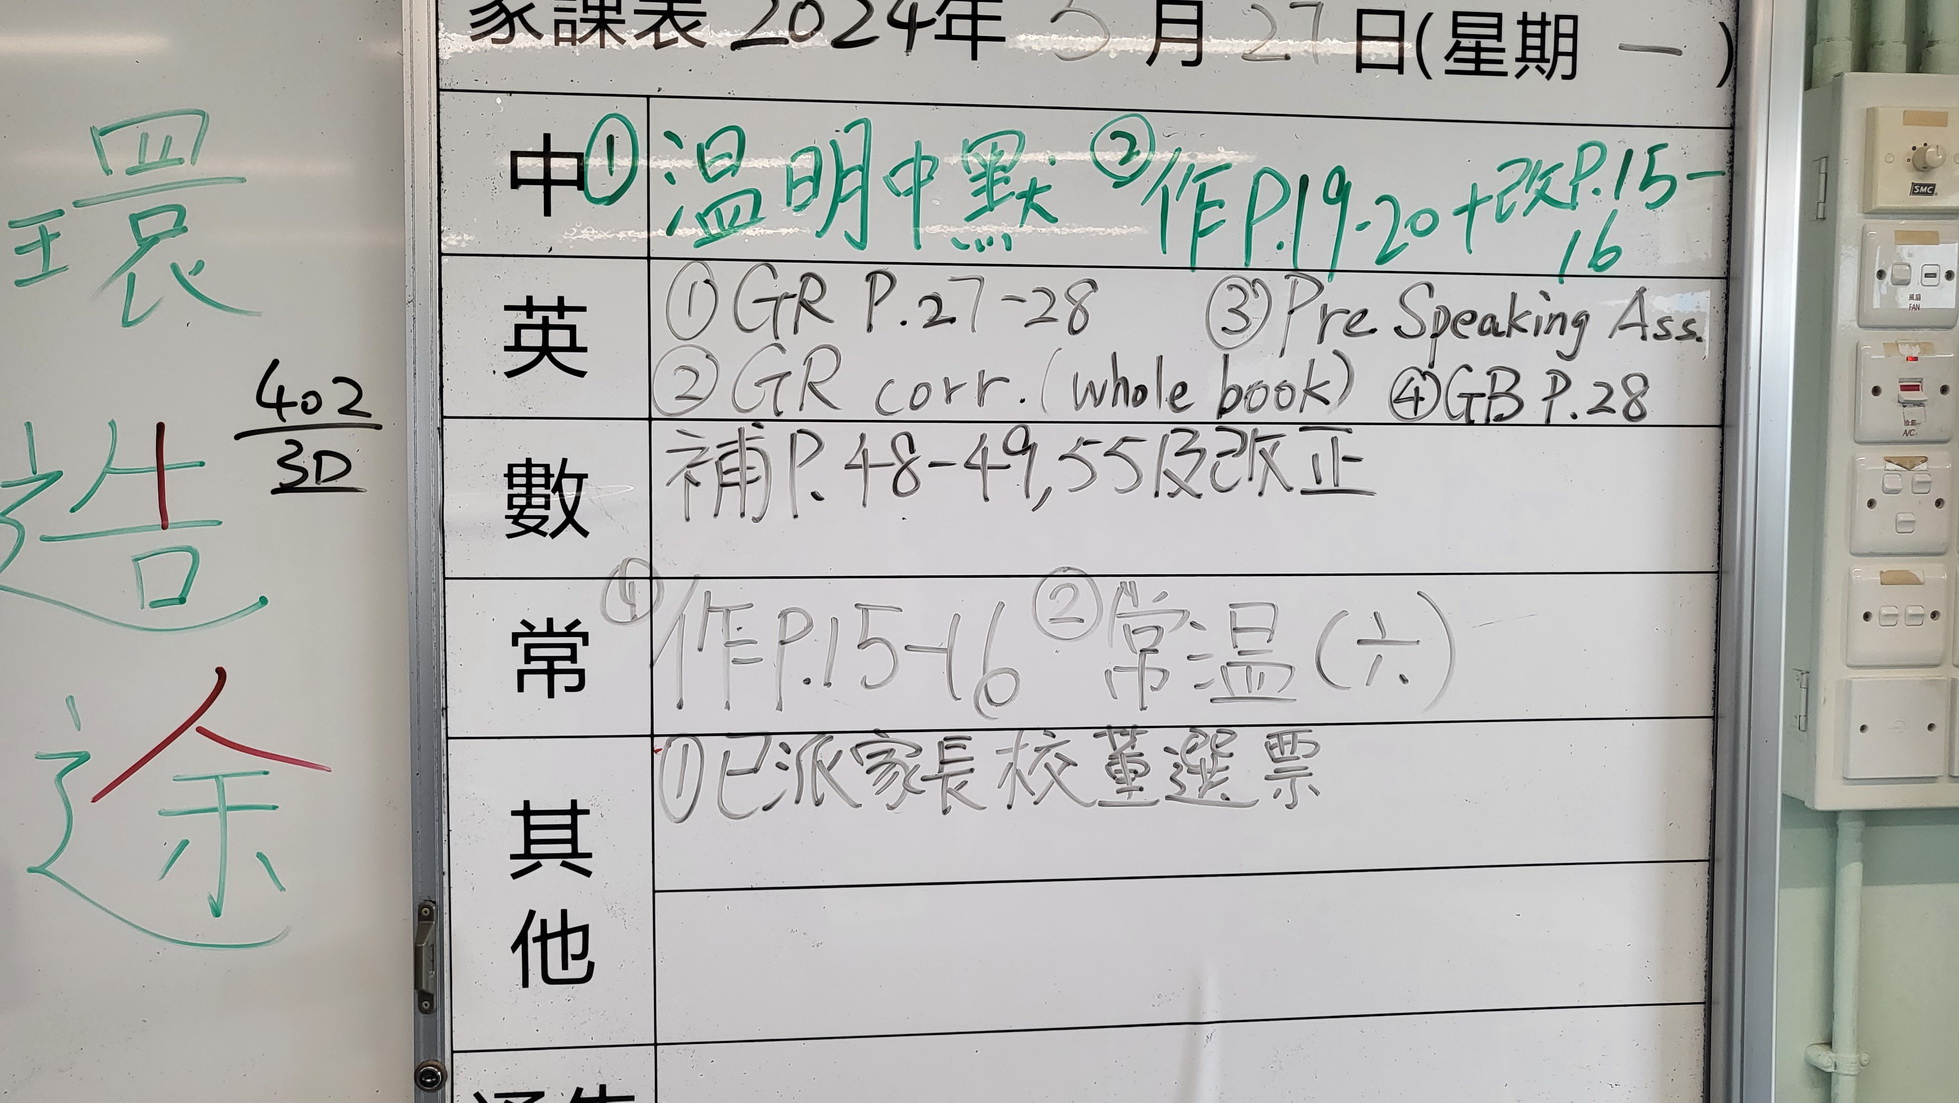 家課表 2024年 5 月 27 日(星期 一 )
中 ① 溫明中默 ② 作P.19-20+改P.15-
16
英 ① GR P.27-28 ③ Pre Speaking Ass.
② GR corr. (whole book) ④ GB P.28
數 補P.48-49,55及改正
常 ① 作P.15-16 ② 常溫(六)
其他 ① 已派家長校董選票
環
造
途
402
3D
SMC
風扇
FAN
A/C